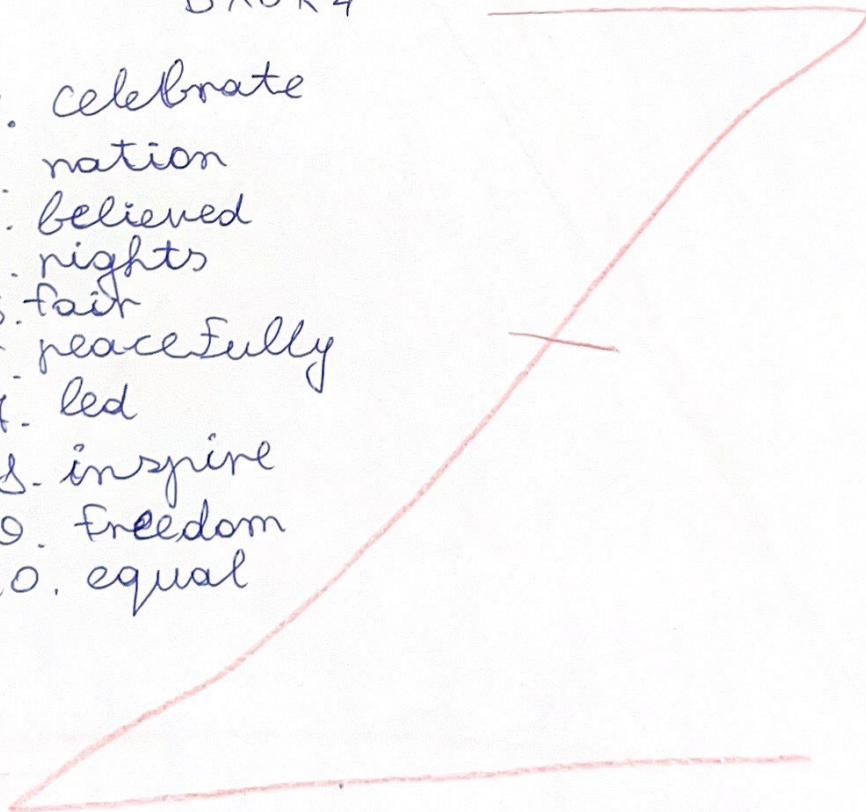 . celebrate
. nation
. believed
. rights
. fair
. peacefully
. led
8. inspire
9. freedom
0. equal